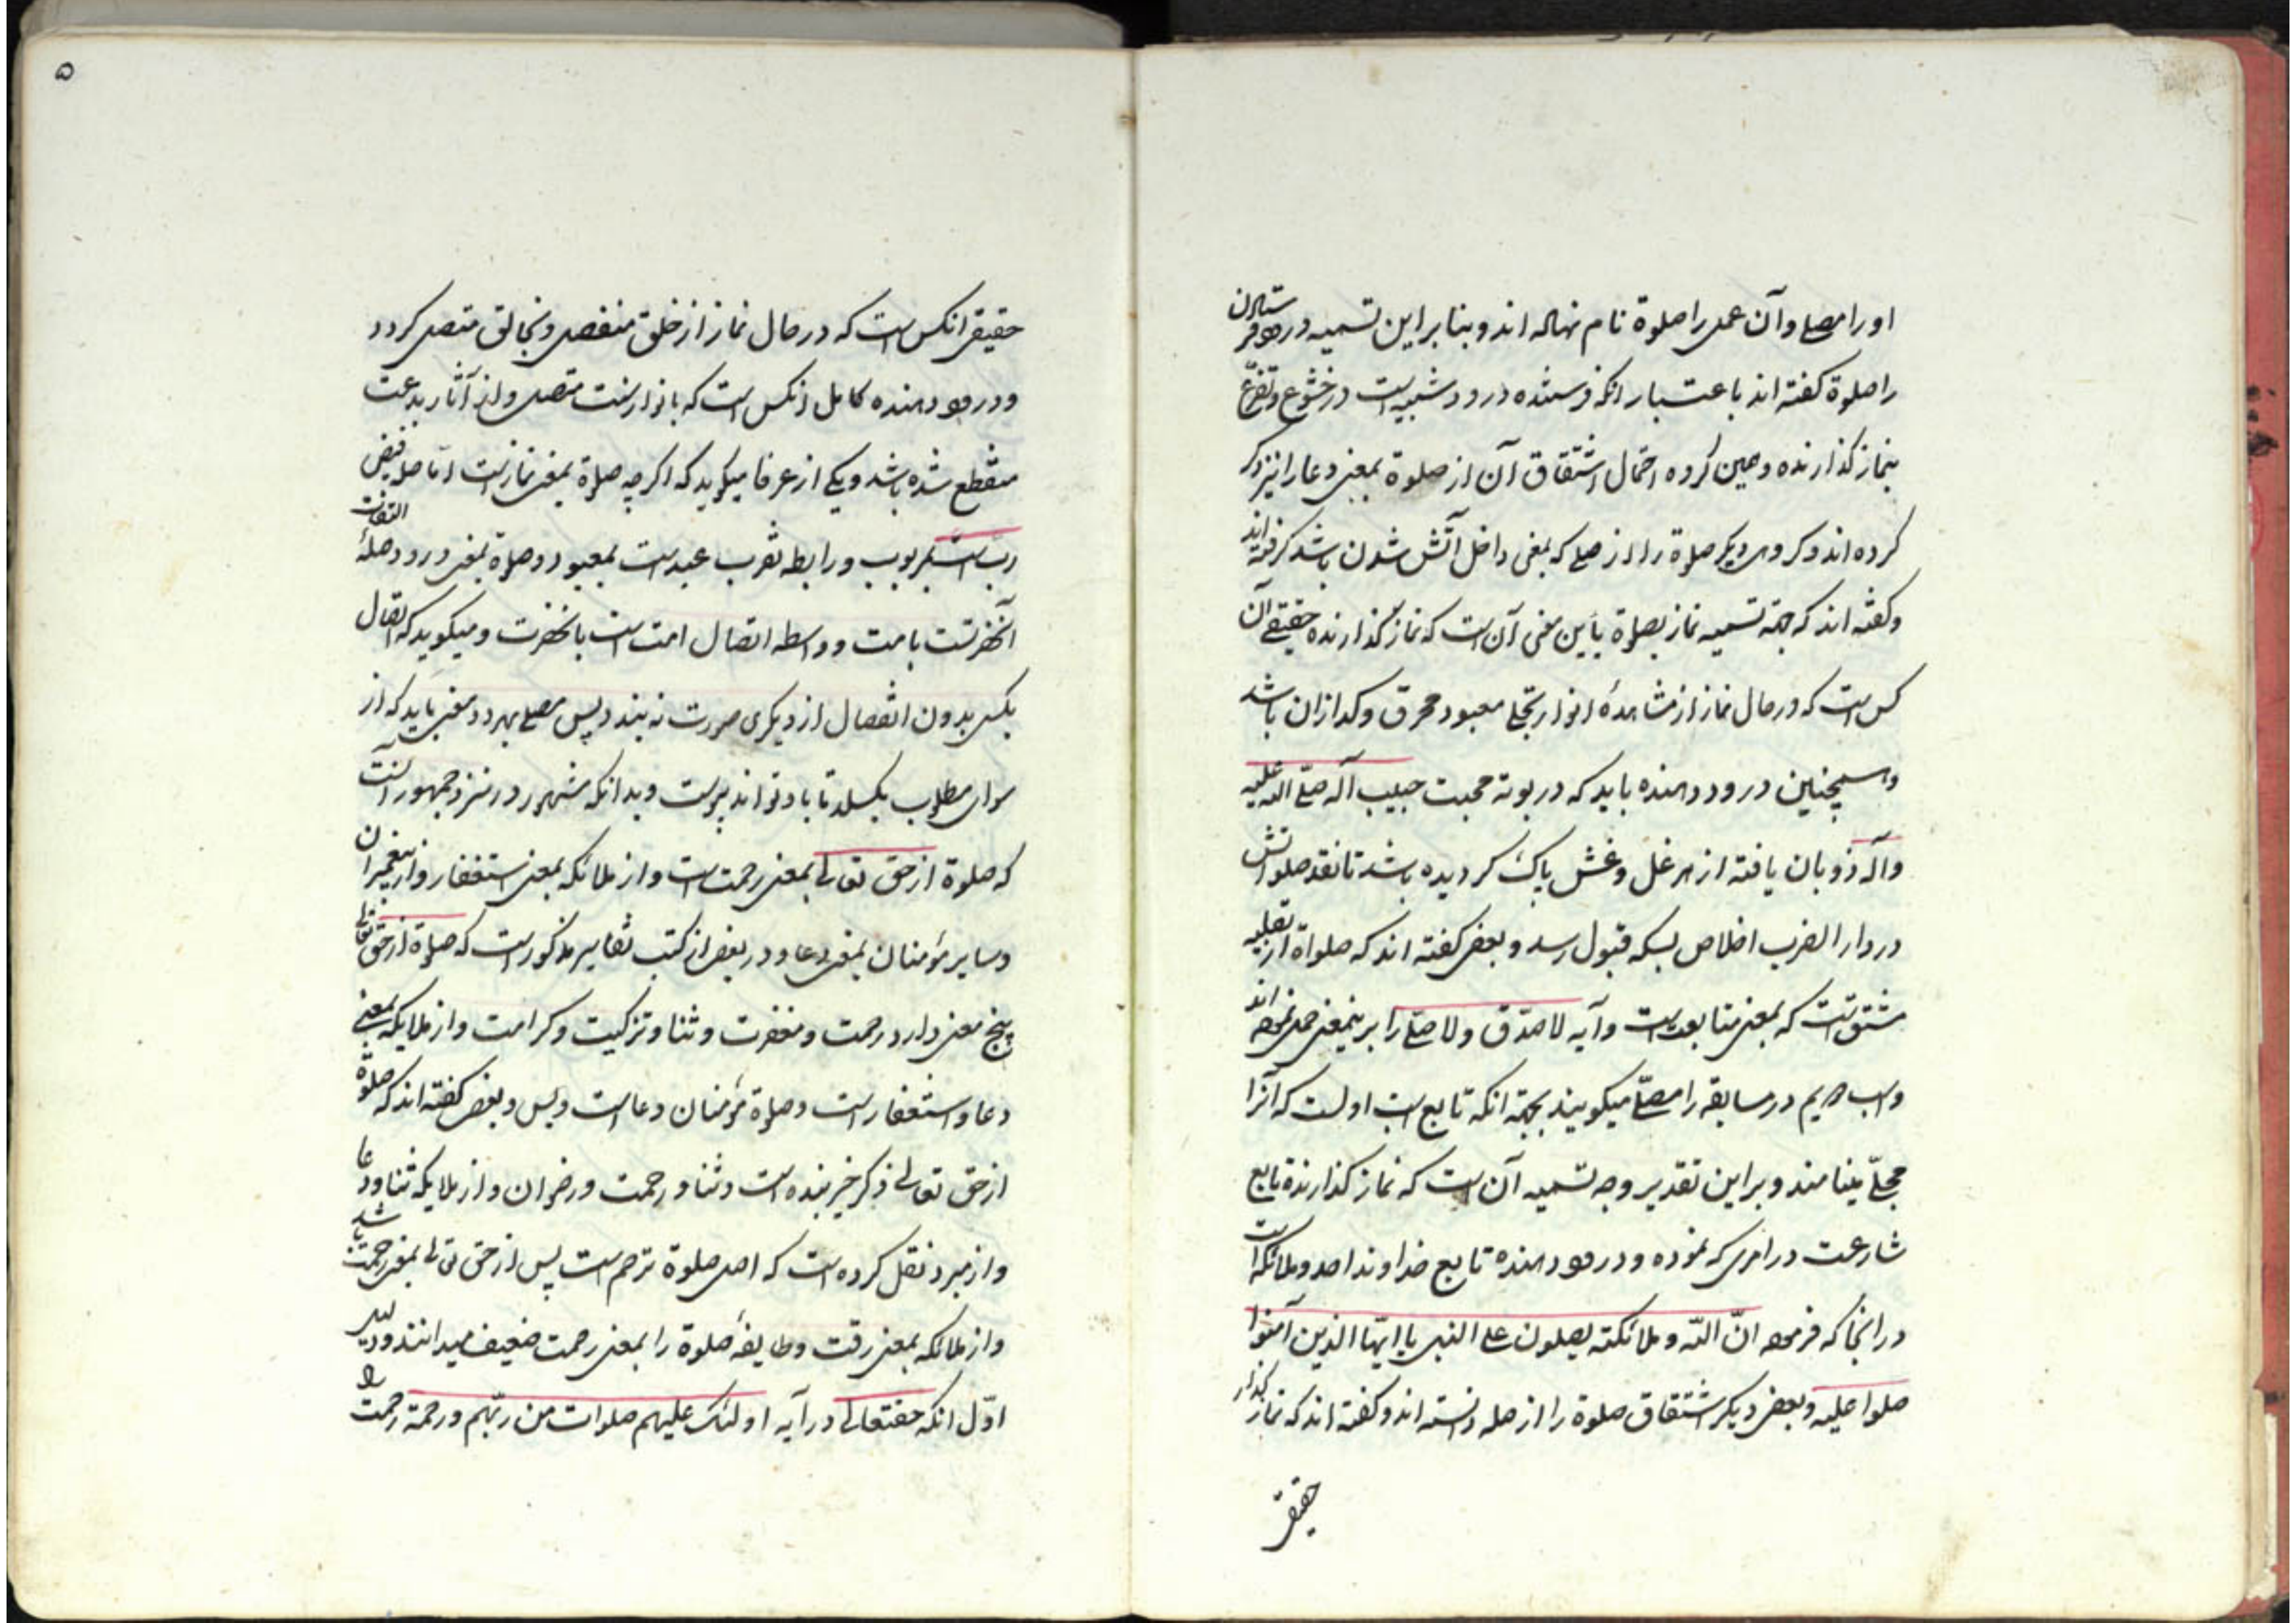 او را مصلی و آن عمل را صلوة نام نهاده اند و بنا بر این تسمیه درود فرستادن
را صلوة کفته اند باعتبار انکه فرستنده درود شبیه است در خشوع و تضرّع
بنماز کذارنده و همین کرده احتمال اشتقاق آن از صلوة بمعنی دعا را نیز ذکر
کرده اند و کروهی دیکر صلوة را از صلی که بمعنی داخل آتش شدن باشد کرفته اند
و کفته اند که جهة تسمیه نماز بصلوة باین معنی آن است که نماز کذارنده حقیقی آن
کس است که در حال نماز از مشاهدهٔ انوار تجلی معبود محرق و کدازان باشد
و همچنین درود دهنده باید که در بوته محبت حبیب آله صلی الله علیه
و آله ذوبان یافته از هر غل و غش پاک کردیده باشد تا نقد صلواتش
در دار الضرب اخلاص بسکه قبول رسد و بعضی کفته اند که صلواة از تصلیه
مشتق است که بمعنی متابعت است و آیه لا صدّق ولا صلّی را برینمعنی حمل نموده اند
و اسب دویم در مسابقه را مصلّی میکویند بجهة انکه تابع اسب اولست که آنرا
مجلّی مینامند و بر این تقدیر وجه تسمیه آن است که نماز کذارنده تابع
شارعست در امری که نموده و درود دهنده تابع خداوند احد و ملائکه است
در انجا که فرموده انّ اللّه وملائکته یصلون علی النبی یا ایّها الذین آمنوا
صلوا علیه و بعضی دیکر اشتقاق صلوة را از صله دانسته اند و کفته اند که نماز کذار
حقیقی
۵
حقیقی انکس است که در حال نماز از خلق منفصل و بخالق متصل کردد
و درود دهنده کامل انکس است که بانوار سنت متصل و از آثار بدعت
منقطع شده باشد و یکی از عرفا میکوید که اکرچه صلوة بمعنی نماز است امّا صله فیض
رب است بمربوب و رابطه تقرب عبد است بمعبود و صلوة بمعنی درود صلهٔ التفات
آنحضرتست بامت و واسطه اتصال امت است بانحضرت و میکوید که اتصال
بکسی بدون انفصال از دیکری صورت نه بندد پس مصلی بهر دو معنی باید که از
سوای مطلوب بکسلد تا باو تواند پیوست و بدانکه مشهور در نزد جمهور آنست
که صلوة از حق تعالی بمعنی رحمت است و از ملائکه بمعنی استغفار و از پیغمبران
و سایر مؤمنان بمعنی دعا و در بعضی از کتب تفاسیر مذکور است که صلوة از حق تعالی
پنج معنی دارد رحمت و مغفرت و ثنا و تزکیت و کرامت و از ملایکه بمعنی
دعا و استغفار است و صلوة مؤمنان دعا است و بس و بعضی کفته اند که صلوة
از حق تعالی ذکر خیر بنده است و ثنا و رحمت و رضوان و از ملایکه ثنا و دعا
و از مبرد نقل کرده است که اصل صلوة ترحم است پس از حق تعالی بمعنی رحمت باشد
و از ملائکه بمعنی رقت و طایفه صلوة را بمعنی رحمت ضعیف میدانند و دلیل
اوّل انکه حقتعالی در آیه اولئک علیهم صلوات من ربّهم ورحمة رحمت را